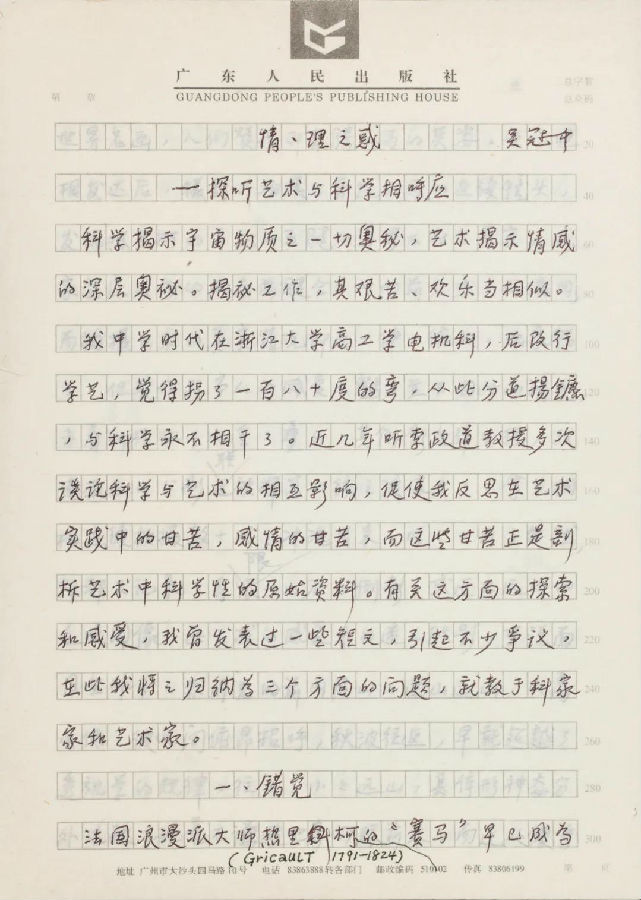 广东人民出版社
GUANGDONG PEOPLE'S PUBLISHING HOUSE
情、理之惑 吴冠中
—探听艺术与科学相呼应
科学揭示宇宙物质之一切奥秘，艺术揭示情感
的深层奥秘。揭秘工作，其艰苦、欢乐当相似。
我中学时代在浙江大学高工学电机科，后改行
学艺，觉得拐了一百八十度的弯，从此分道扬镳
，与科学永不相干了。近几年听李政道教授多次
谈论科学与艺术的相互影响，促使我反思在艺术
实践中的甘苦，感情的甘苦，而这些甘苦正是剖
析艺术中科学性的原始资料。有关这方面的探索
和感受，我曾发表过一些短文，引起不少争议，
在此我将之归纳为三个方面的问题，就教于科家
家和艺术家。
一、错觉
法国浪漫派大师热里柯的“赛马”早已成为
(GricaulT 1791-1824)
地址 广州市大沙头四马路10号 电话 83863888转各部门 邮政编码 510102 传真 83806199
20
40
60
80
100
120
140
160
180
200
220
240
260
280
300